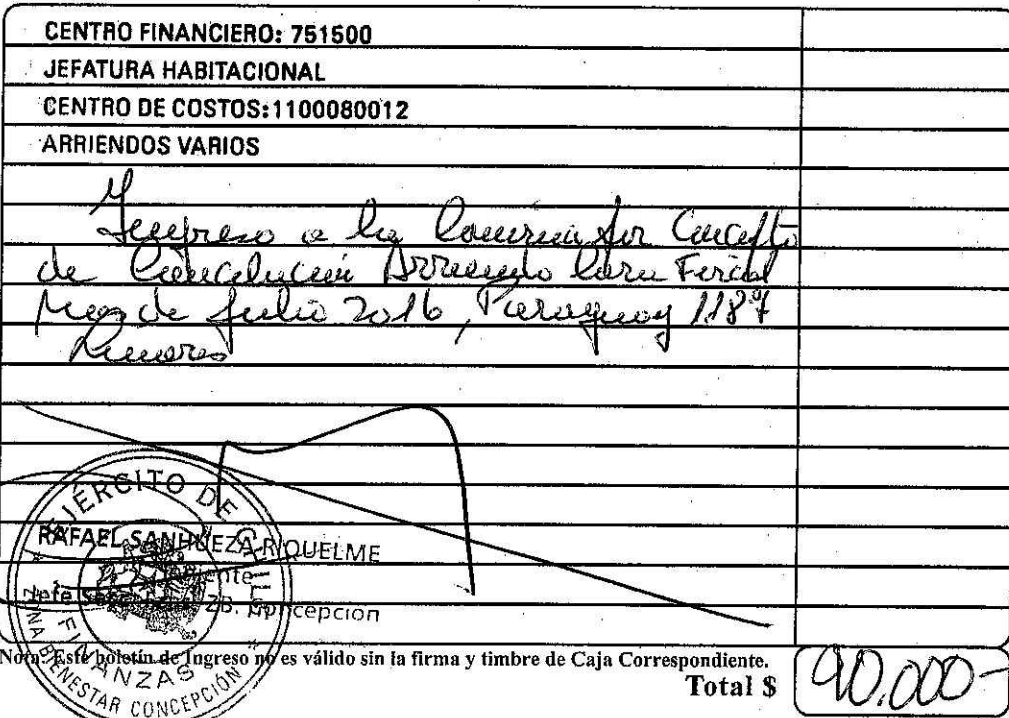 CENTRO FINANCIERO: 751500
JEFATURA HABITACIONAL
CENTRO DE COSTOS: 1100080012
ARRIENDOS VARIOS
Ingreso a la por Concepto
de Cancelación Arriendo Casa Fiscal
Mes de Julio 2016, Paraguay 1187
Linares
EJÉRCITO DE CHILE
RAFAEL SANHUEZA RIQUELME
ZB. Concepción
FINANZAS
BIENESTAR CONCEPCIÓN
Nota: Este boletín de Ingreso no es válido sin la firma y timbre de Caja Correspondiente.
Total $ 90.000-